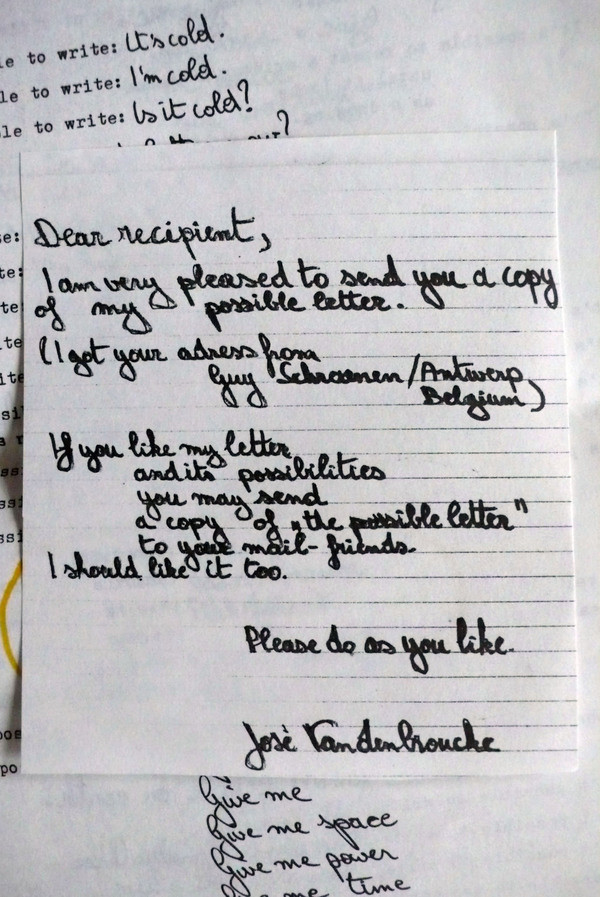 le to write: It's cold.
le to write: I'm cold.
le to write: Is it cold?
Dear recipient,
I am very pleased to send you a copy
of my possible letter.
(I got your adress from
Guy Schraenen/Antwerp
Belgium)
If you like my letter
and its possibilities
you may send
a copy of „the possible letter"
to your mail-friends.
I should like it too.
Please do as you like.
José Vandenbroucke
Give me
Give me space
Give me power
me time